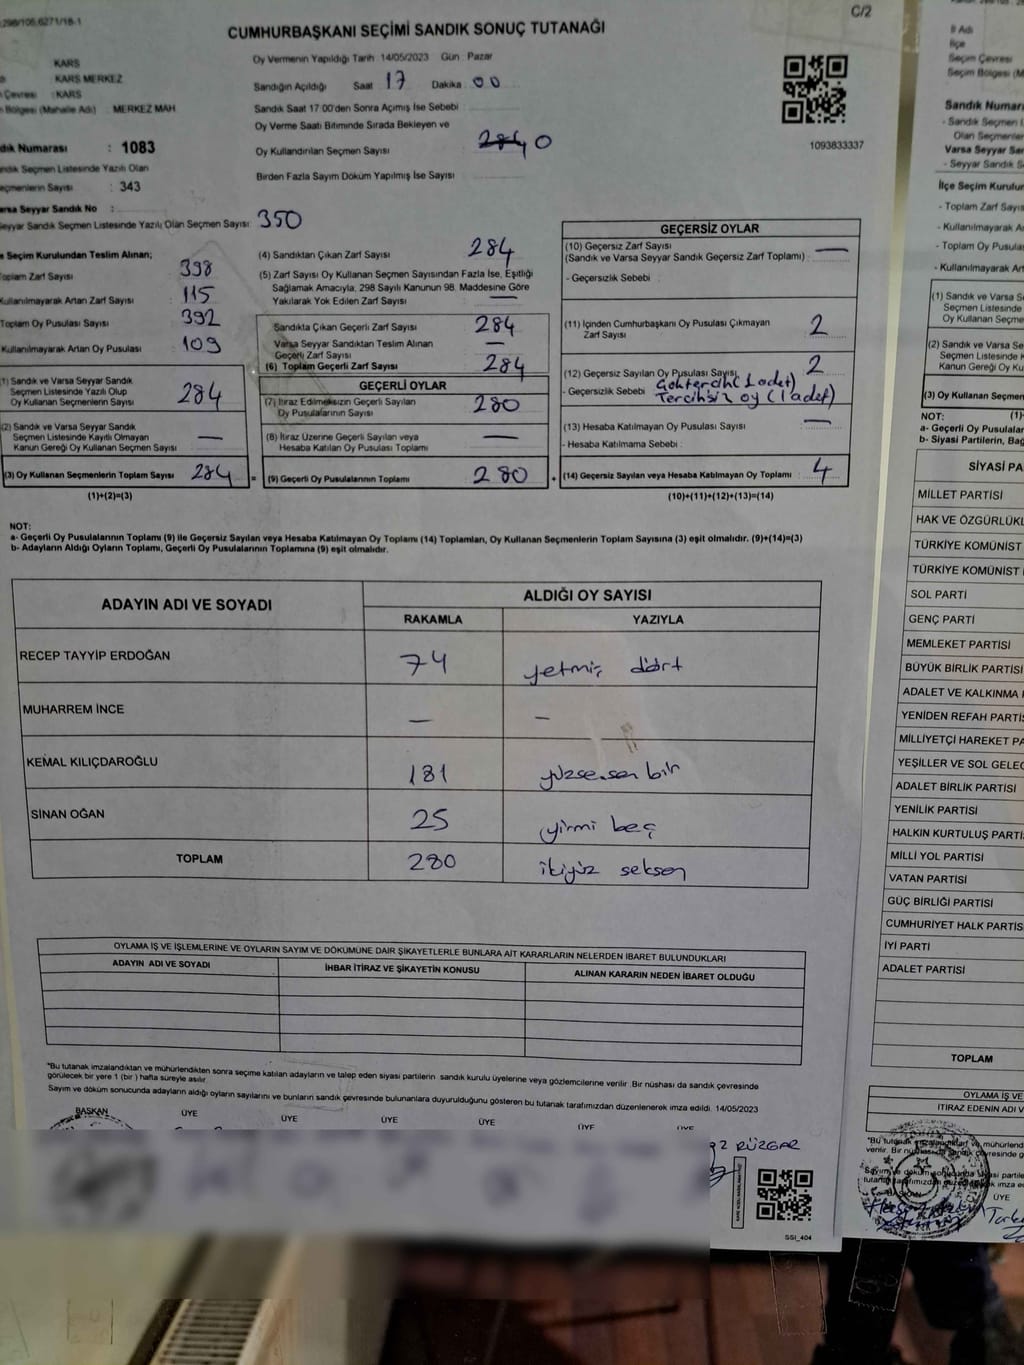 298/106.6271/18-1
C/2
CUMHURBAŞKANI SEÇİMİ SANDIK SONUÇ TUTANAĞI
KARS
KARS MERKEZ
Çevresi : KARS
Bölgesi (Mahalle Adı) : MERKEZ MAH
Numarası : 1083
Seçmen Listesinde Yazılı Olan
Sayısı : 343
Seyyar Sandık No :
Seyyar Sandık Seçmen Listesinde Yazılı Olan Seçmen Sayısı: 350
Oy Vermenin Yapıldığı Tarih 14/05/2023 Gün Pazar
Sandığın Açıldığı Saat 17 Dakika 00
Sandık Saat 17:00'den Sonra Açımış İse Sebebi
Oy Verme Saati Bitiminde Sırada Bekleyen ve
Oy Kullandırılan Seçmen Sayısı 284 0
Birden Fazla Sayım Döküm Yapılmış İse Sayısı
1093833337
Seçim Kurulundan Teslim Alınan;
Toplam Zarf Sayısı 398
Kullanılmayarak Artan Zarf Sayısı 115
Toplam Oy Pusulası Sayısı 392
Kullanılmayarak Artan Oy Pusulası 109
(1) Sandık ve Varsa Seyyar Sandık
Seçmen Listesinde Yazılı Olup
Oy Kullanan Seçmenlerin Sayısı 284
(2) Sandık ve Varsa Seyyar Sandık
Seçmen Listesinde Kayıtlı Olmayan
Kanun Gereği Oy Kullanan Seçmen Sayısı —
(3) Oy Kullanan Seçmenlerin Toplam Sayısı 284 =
(1)+(2)=(3)
(4) Sandıktan Çıkan Zarf Sayısı 284
(5) Zarf Sayısı Oy Kullanan Seçmen Sayısından Fazla İse, Eşitliği
Sağlamak Amacıyla, 298 Sayılı Kanunun 98. Maddesine Göre
Yakılarak Yok Edilen Zarf Sayısı —
Sandıkta Çıkan Geçerli Zarf Sayısı 284
Varsa Seyyar Sandıktan Teslim Alınan
Geçerli Zarf Sayısı —
(6) Toplam Geçerli Zarf Sayısı 284
GEÇERLİ OYLAR
(7) İtiraz Edilmeksizin Geçerli Sayılan
Oy Pusulalarının Sayısı 280
(8) İtiraz Üzerine Geçerli Sayılan veya
Hesaba Katılan Oy Pusulası Toplamı —
(9) Geçerli Oy Pusulalarının Toplamı 280 +
GEÇERSİZ OYLAR
(10) Geçersiz Zarf Sayısı
(Sandık ve Varsa Seyyar Sandık Geçersiz Zarf Toplamı) : —
- Geçersizlik Sebebi :
(11) İçinden Cumhurbaşkanı Oy Pusulası Çıkmayan
Zarf Sayısı 2
(12) Geçersiz Sayılan Oy Pusulası Sayısı 2
- Geçersizlik Sebebi Çoktercih (1 adet)
Tercihsiz oy (1 adet)
(13) Hesaba Katılmayan Oy Pusulası Sayısı —
- Hesaba Katılmama Sebebi :
(14) Geçersiz Sayılan veya Hesaba Katılmayan Oy Toplamı : 4
(10)+(11)+(12)+(13)=(14)
NOT:
a- Geçerli Oy Pusulalarının Toplamı (9) ile Geçersiz Sayılan veya Hesaba Katılmayan Oy Toplamı (14) Toplamları, Oy Kullanan Seçmenlerin Toplam Sayısına (3) eşit olmalıdır. (9)+(14)=(3)
b- Adayların Aldığı Oyların Toplamı, Geçerli Oy Pusulalarının Toplamına (9) eşit olmalıdır.
ADAYIN ADI VE SOYADI
ALDIĞI OY SAYISI
RAKAMLA YAZIYLA
RECEP TAYYİP ERDOĞAN 74 yetmiş dört
MUHARREM İNCE — –
KEMAL KILIÇDAROĞLU 181 yüzseksen bir
SİNAN OĞAN 25 yirmi beş
TOPLAM 280 ikiyüz seksen
OYLAMA İŞ VE İŞLEMLERİNE VE OYLARIN SAYIM VE DÖKÜMÜNE DAİR ŞİKAYETLERLE BUNLARA AİT KARARLARIN NELERDEN İBARET BULUNDUKLARI
ADAYIN ADI VE SOYADI İHBAR İTİRAZ VE ŞİKAYETİN KONUSU ALINAN KARARIN NEDEN İBARET OLDUĞU
*Bu tutanak imzalandıktan ve mühürlendikten sonra seçime katılan adayların ve talep eden siyasi partilerin sandık kurulu üyelerine veya gözlemcilerine verilir. Bir nüshası da sandık çevresinde
görülecek bir yere 1 (bir) hafta süreyle asılır.
Sayım ve döküm sonucunda adayların aldığı oyların sayılarını ve bunların sandık çevresinde bulunanlara duyurulduğunu gösteren bu tutanak tarafımızdan düzenlenerek imza edildi. 14/05/2023
BAŞKAN ÜYE ÜYE ÜYE ÜYE ÜYE ÜYE
RÜZGAR
SSI_404
İl Adı
İlçe
Seçim Çevresi
Seçim Bölgesi
Sandık Numar
- Sandık Seçmen
Olan Seçmenler
Varsa Seyyar San
- Seyyar Sandık S
İlçe Seçim Kurulun
- Toplam Zarf Sayıs
- Kullanılmayarak Ar
- Toplam Oy Pusula
- Kullanılmayarak Ar
(1) Sandık ve Varsa Se
Seçmen Listesinde
Oy Kullanan Seçme
(2) Sandık ve Varsa Se
Seçmen Listesinde
Kanun Gereği Oy Ku
(3) Oy Kullanan Seçmen
NOT: (1)
a- Geçerli Oy Pusulalar
b- Siyasi Partilerin, Bağ
SİYASİ PA
MİLLET PARTİSİ
HAK VE ÖZGÜRLÜKL
TÜRKİYE KOMÜNİST
TÜRKİYE KOMÜNİST
SOL PARTİ
GENÇ PARTİ
MEMLEKET PARTİSİ
BÜYÜK BİRLİK PARTİSİ
ADALET VE KALKINMA
YENİDEN REFAH PARTİS
MİLLİYETÇİ HAREKET PA
YEŞİLLER VE SOL GELEC
ADALET BİRLİK PARTİSİ
YENİLİK PARTİSİ
HALKIN KURTULUŞ PARTİSİ
MİLLİ YOL PARTİSİ
VATAN PARTİSİ
GÜÇ BİRLİĞİ PARTİSİ
CUMHURİYET HALK PARTİS
İYİ PARTİ
ADALET PARTİSİ
TOPLAM
OYLAMA İŞ VE
İTİRAZ EDENİN ADI V
*Bu tutanak imzalandıktan ve mühürlend
verilir. Bir nüshası da sandık çevresinde g
ÜYE